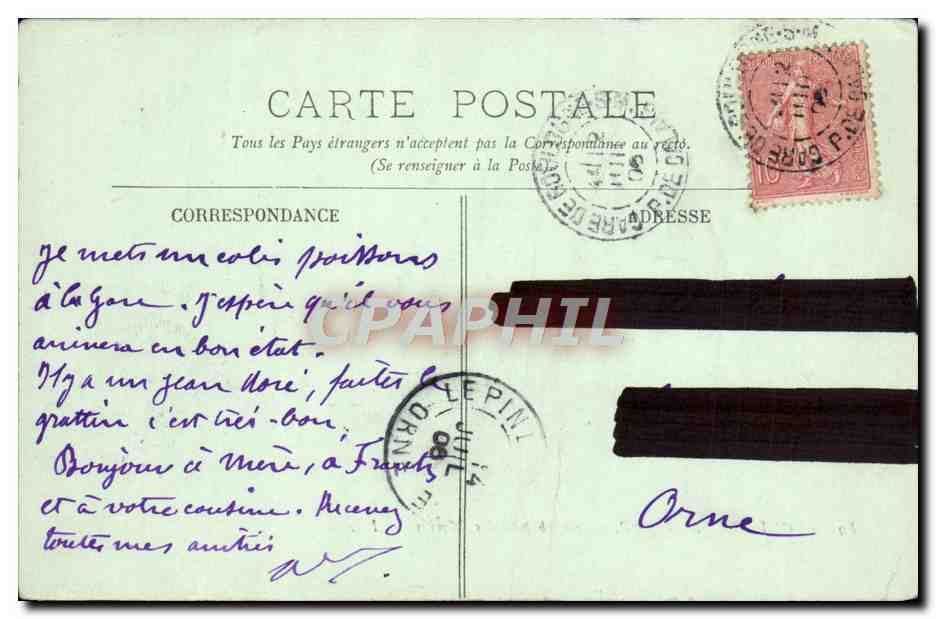 CARTE POSTALE
Tous les Pays étrangers n'acceptent pas la Correspondance au recto.
(Se renseigner à la Poste)
CORRESPONDANCE
Je mets un colis poissons
à la Gare. J'espère qu'il vous
arrivera en bon état.
Il y a un jean doré, faites le
grattin c'est très-bon,
Bonjour à Mère, à Frantz
et à votre cousine. Recevez
toutes mes amitiés
ADRESSE
Orne
CPAPHIL
LE PIN
ORNE
14
JUIL
06
GARE DE
P. DE C
10